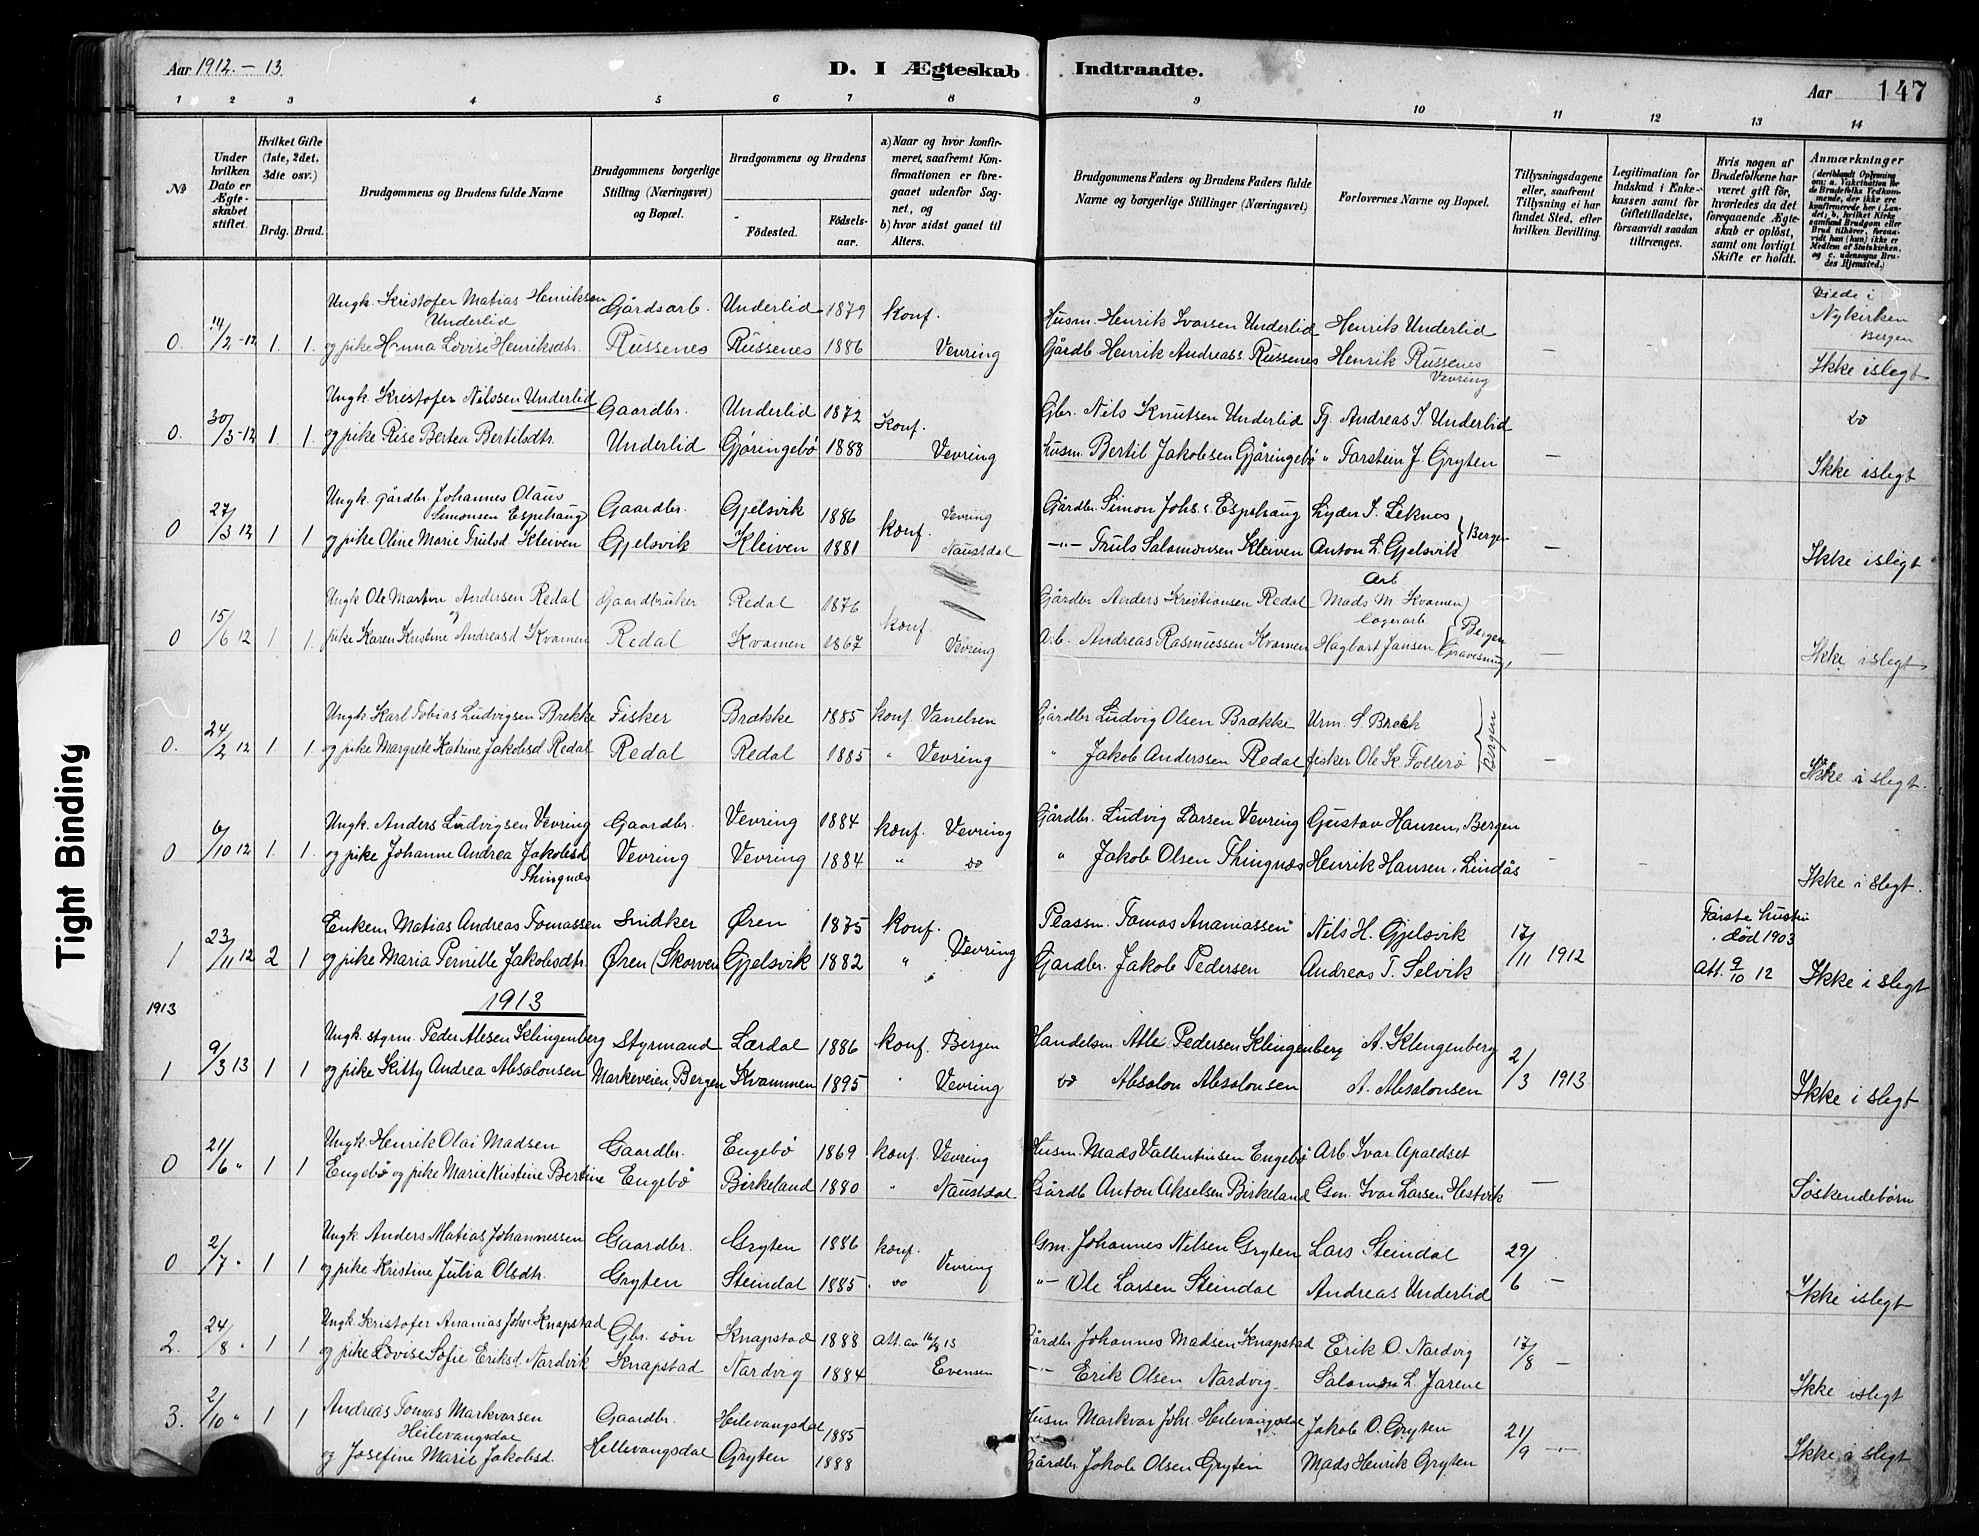 Aar 1912. - 13
D. I Ægteskab Indtraadte.
Aar 147
1 2 3 4 5 6 7 8 9 10 11 12 13 14
No
Under hvilken Dato er Ægteskabet stiftet.
Hvilket Gifte (1ste, 2det, 3die osv.)
Brdg. Brud.
Brudgommens og Brudens fulde Navne
Brudgommens borgerlige Stilling (Næringsvei) og Bopæl.
Brudgommens og Brudens
Fødested.
Fødselsaar.
a) Naar og hvor konfirmeret, saafremt Konfirmationen er foregaaet udenfor Sognet, og
b) hvor sidst gaaet til Alters.
Brudgommens Faders og Brudens Faders fulde Navne og borgerlige Stillinger (Næringsvei)
Forlovernes Navne og Bopæl.
Tillysningsdagene eller, saafremt Tillysning ei har fundet Sted, efter hvilken Bevilling.
Legitimation for Indskud i Enkekassen samt for Giftetilladelse, forsaavidt saadan tiltrænges.
Hvis nogen af Brudefolkene har været gift før, hvorledes da det foregaaende Ægteskab er opløst, samt om lovligt Skifte er holdt.
Anmærkninger (deriblandt Oplysning om: a. Vakcination for de Brudefolks Vedkommende, der ikke ere konfirmerede her i Landet; b. hvilket Kirkesamfund Brudgom eller Brud tilhører, forsaavidt han (hun) ikke er Medlem af Statskirken, og c. udensogns Brudes Hjemsted.)
Ungk. Kristofer Matias Henriksen Underlid Gårdsarb. Underlid 1879 konf. Husm. Henrik Ivarsen Underlid Henrik Underlid Viede i Nykirken Bergen
0. 14/2-12 1. 1. og pike Hanna Lovise Henriksdtr. Russenes Russenes 1886 Vevring Gårdb Henrik Andreass Russenes Henrik Russenes Vevring – – Ikke islegt
Ungk Kristofer Nilssen Underlid Gaardbr. Underlid 1872 Konf. Gbr. Nils Knutsen Underlid Fg. Andreas I Underlid do
0. 30/3-12 1. 1. og pike Rise Bertea Bertilsdtr. Underlid Gjøringebø 1888 Vevring Husm. Bertil Jakobsen Gjøringebø " Torstein J. Gryten – Ikke islegt
Ungk. gårdbr Johannes Olaus Simonsen Espehaug Gaardbr. Gjelsvik 1886 konf. Vevring Gårdbr. Simon Johs. s Espehaug Lyder I. Leknes Bergen
0 27/3 12 1 1 og pike Oline Marie Trulsd Kleiven Gjelsvik Kleiven 1881 Naustdal –"– Truls Salamonsen Kleiven Anton L. Gjelsvik – Ikke islegt
Ungk Ole Martin Andersen Redal Gaardbruker Redal 1876 konf Gårdbr Anders Kristiansen Redal Arb Mads M Kvamen Bergen
0 15/6 12 1 1. pike Karen Kristine Andreasd Kvamen Redal Kvamen 1867 Vevring Arb. Andreas Rasmussen Kvamen lagerarb Hagbart Jansen – Ikke islegt
Ungk Karl Tobias Ludvigsen Brekke Fisker Brække 1885 konf Vanelven Gårdbr Ludvig Olsen Brække Urm. S. Brack Bergen
0. 24/2 12 1 1. og pike Margrete Katrine Jakobsd Redal Redal Redal 1885 " Vevring " Jakob Anderssen Redal fisker Ole K Follerø – Ikke i slegt.
Ungk. Anders Ludvigsen Vevring Gaardbr. Vevring 1884 konf. Vevring Gårdbr. Ludvig Larsen Vevring Gustav Hansen, Bergen
0 6/10 12 1. 1. og pike Johanne Andrea Jakobsd Thingnæs Vevring Vevring 1884 " do " Jakob Olsen Thingnæs Henrik Hansen, Lindås – – Ikke i slegt.
Enkem Matias Andreas Tomassen Snidker Øren 1875 konf. Plassm. Tomas Ananiassen Nils H. Gjelsvik 17/11 1912 Første hustru død 1903 att. 9/10 12
1 23/11 12 2 1 og pike Maria Pernille Jakobsdtr. Øren (Skorven Gjelsvik 1882 " Vevring Gårdbr. Jakob Pedersen Andreas T. Selvik Ikke i slegt
1913
1913
Ungk. styrm. Peder Alesen Klingenberg Styrmand Lærdal 1886 konf. Bergen Handelsm. Atle Pedersen Klingenberg A. Klingenberg 2/3 1913
1 9/3 13 1 1 og pike Kitty Andrea Absalonsen Markeveien, Bergen Kvammen 1895 " Vevring do Absalon Absalonsen A. Absalonsen Ikke i slegt
Ungk Henrik Olai Madsen Gaardbr. Engebø 1869 konf Vevring Husm. Mads Vallentinsen Engebø Arb. Ivar Apaldset
0 21/6 " 1 1 Engebø og pike Marie Kristine Bertine Engebø Birkeland 1880 " Naustdal Gårdb Anton Akselsen Birkeland Gm. Ivar Larsen Hestvik – Søskendebørn
Ungk Anders Matias Johannessen Gaardbr. Gryten 1886 konf. Vevring Gm. Johannes Nilsen Gryten Lars Steindal 29/6 –
0 2/7 " 1 1 og pike Kristine Julia Olsdtr. Gryten Steindal 1885 " do "– Ole Larsen Steindal Andreas Underlid Ikke islegt
Ungk Kristofer Ananias Johs Knapstad Gbr. søn Knapstad 1888 att. av 16/8 13 Gårdbr Johannes Madsen Knapstad Erik O. Nardvig 17/8 –
2. 24/8 " 1 1 og pike Lovise Sofie Eriksd. Nardvik Knapstad Nardvig 1884 Evensen –"– Erik Olsen Nardvig. Salomon L Jarene Ikke islegt
Andreas Tomas Markvarsen Heilevangsdal Gaardbr. Heilevangsdal 1885 Husm Markvar Johs. Heilevangsdal Jakob O. Gryten 21/9 –"–
3. 2/10 " 1 1 og Josefine Marie Jakobsd. Hellevangsdal Gryten 1888 Gårdbr Jakob Olsen Gryten Mads Henrik Gryten Ikke i slegt
Tight Binding